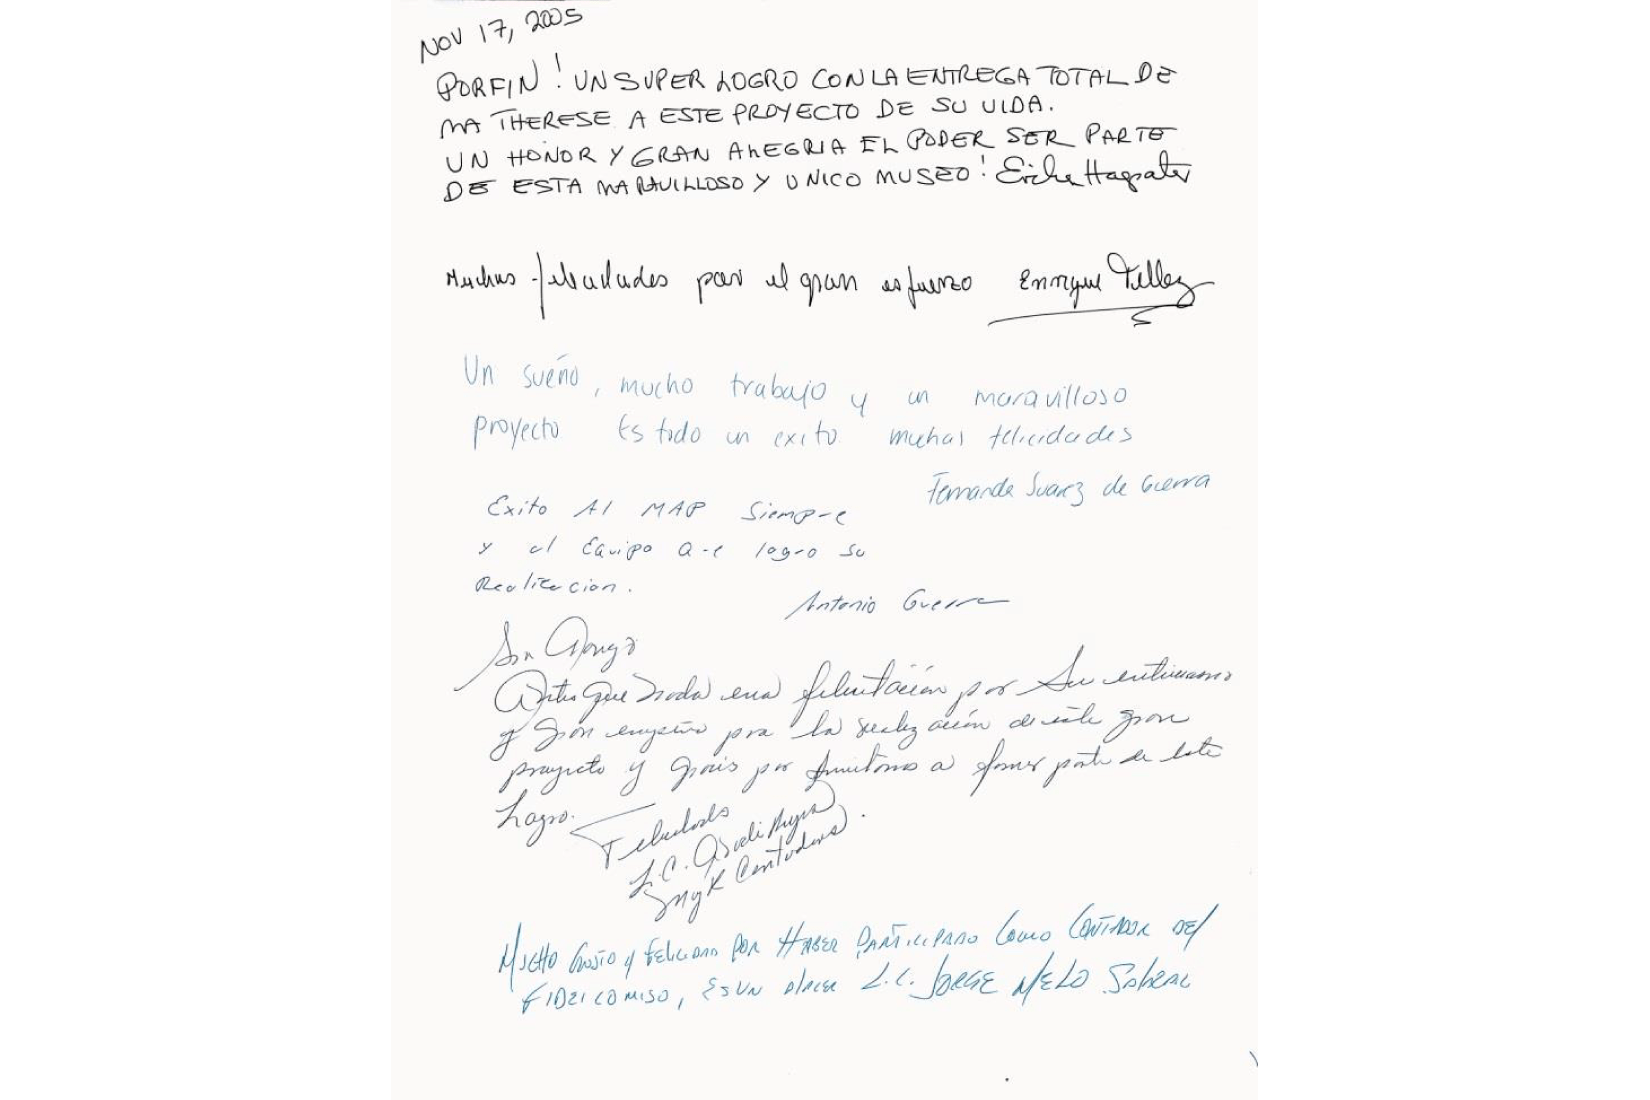 NOV 17, 2005
PORFIN! UN SUPER LOGRO CON LA ENTREGA TOTAL DE
MA THERESE A ESTE PROYECTO DE SU VIDA.
UN HONOR Y GRAN ALEGRIA EL PODER SER PARTE
DE ESTA MARAVILLOSO Y UNICO MUSEO!
Muchas felicidades por el gran esfuerzo Enrique Tellez
Un sueño, mucho trabajo y un maravilloso
proyecto Es todo un exito muchas felicidades
Fernanda Suarez de Guerra
Exito Al MAP Siempre
y al Equipo que logro su
Realizacion.
Antonio Guerra
Antes que nada una felicitación por su entusiasmo
y gran empeño para la realización de este gran
proyecto y gracias por invitarnos a formar parte de este
Logro.
Felicidades
L.C.
Contadores.
MUCHO GUSTO Y FELICIDAD POR HABER PARTICIPADO COMO CONTADOR DEL
FIDEICOMISO, ES UN PLACER L.C. JORGE MELO SOBERAL